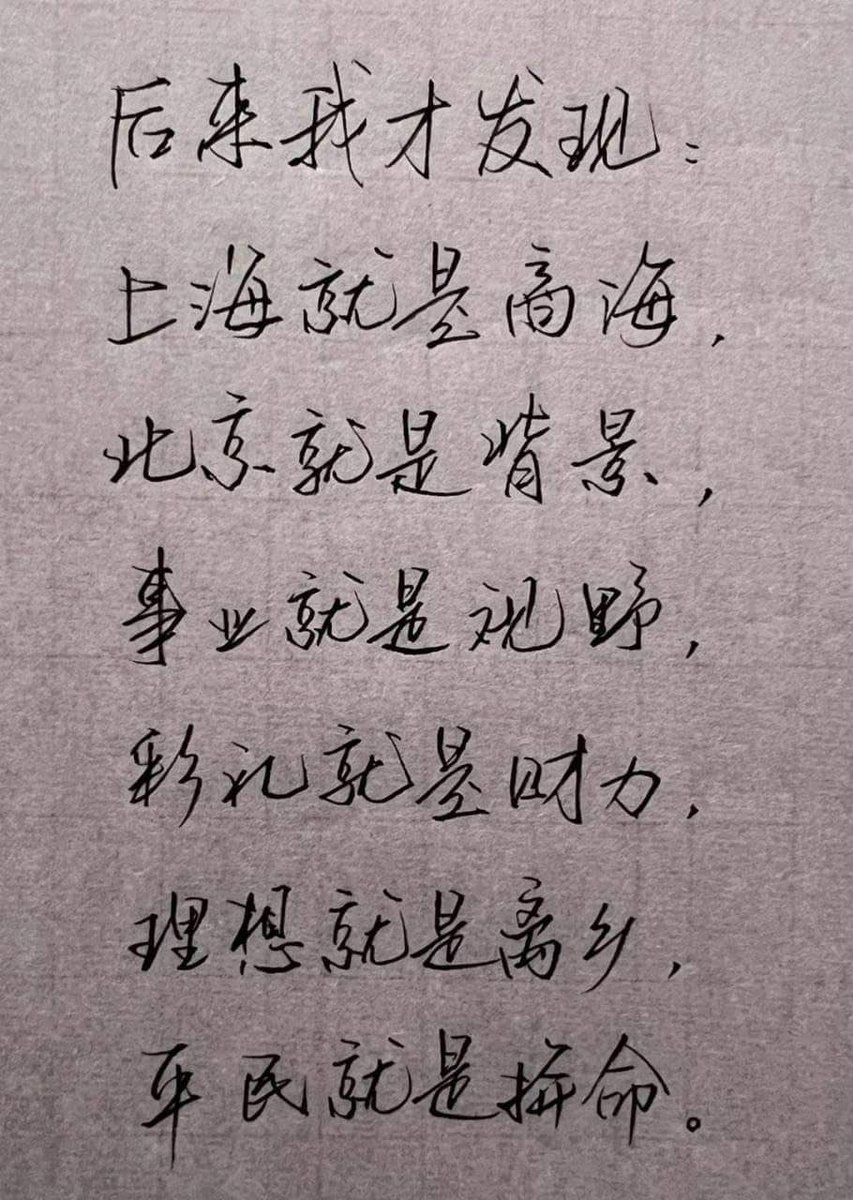 后来我才发现：
上海就是商海，
北京就是背景，
事业就是视野，
彩礼就是财力，
理想就是离乡，
平民就是拼命。